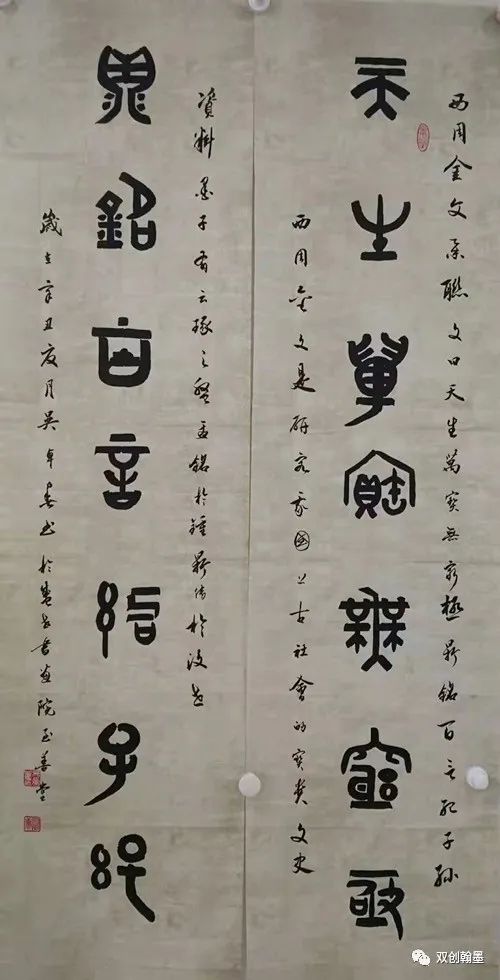 西周金文集聯文曰天生萬寶無窮極鼎銘百言子孫
天生萬寶無窮極
西周金文是研究我國上古社會的寶貴文史
資料墨子有云琢之盤盂銘於鍾鼎傳於後世
鼎銘百言子孫
歲在辛丑夏月吳卓春書於書画院至善堂
双创翰墨